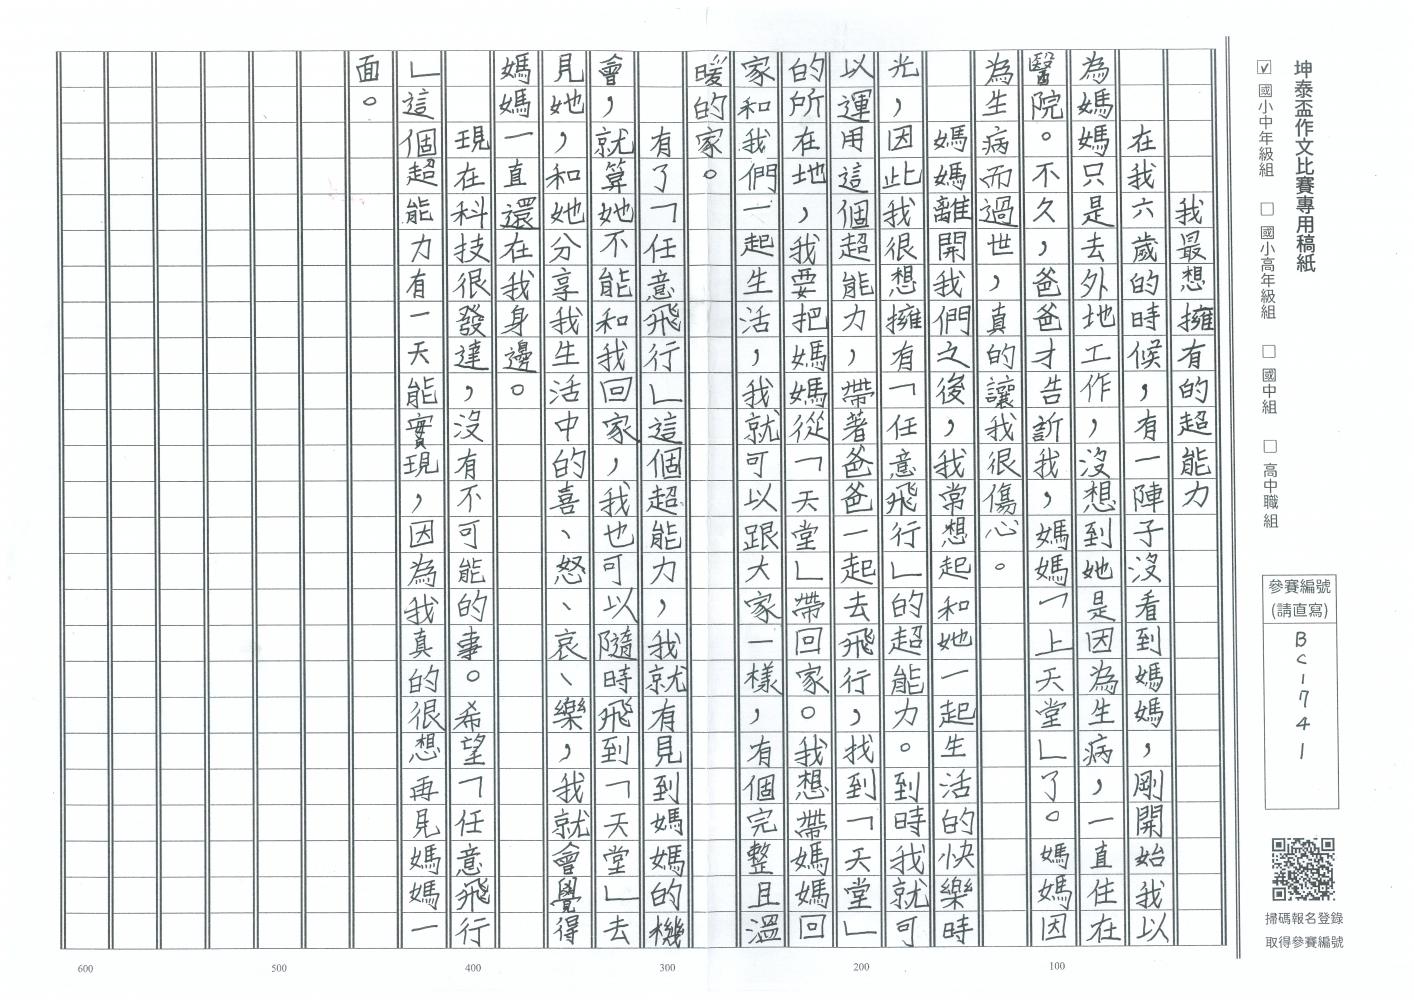 坤泰盃作文比賽專用稿紙
☑ 國小中年級組 □ 國小高年級組 □ 國中組 □ 高中職組
參賽編號
(請直寫)
BC11741
掃碼報名登錄
取得參賽編號
我最想擁有的超能力
在我六歲的時候，有一陣子沒看到媽媽，剛開始我以
為媽媽只是去外地工作，沒想到她是因為生病，一直住在
醫院。不久，爸爸才告訴我，媽媽「上天堂」了。媽媽因
為生病而過世，真的讓我很傷心。
媽媽離開我們之後，我常想起和她一起生活的快樂時
光，因此我很想擁有「任意飛行」的超能力。到時我就可
以運用這個超能力，帶著爸爸一起去飛行，找到「天堂」
的所在地，我要把媽媽從「天堂」帶回家。我想帶媽媽回
家和我們一起生活，我就可以跟大家一樣，有個完整且溫
暖的家。
有了「任意飛行」這個超能力，我就有見到媽媽的機
會，就算她不能和我回家，我也可以隨時飛到「天堂」去
見她，和她分享我生活中的喜、怒、哀、樂，我就會覺得
媽媽一直還在我身邊。
現在科技很發達，沒有不可能的事。希望「任意飛行
」這個超能力有一天能實現，因為我真的很想再見媽媽一
面。
100
200
300
400
500
600